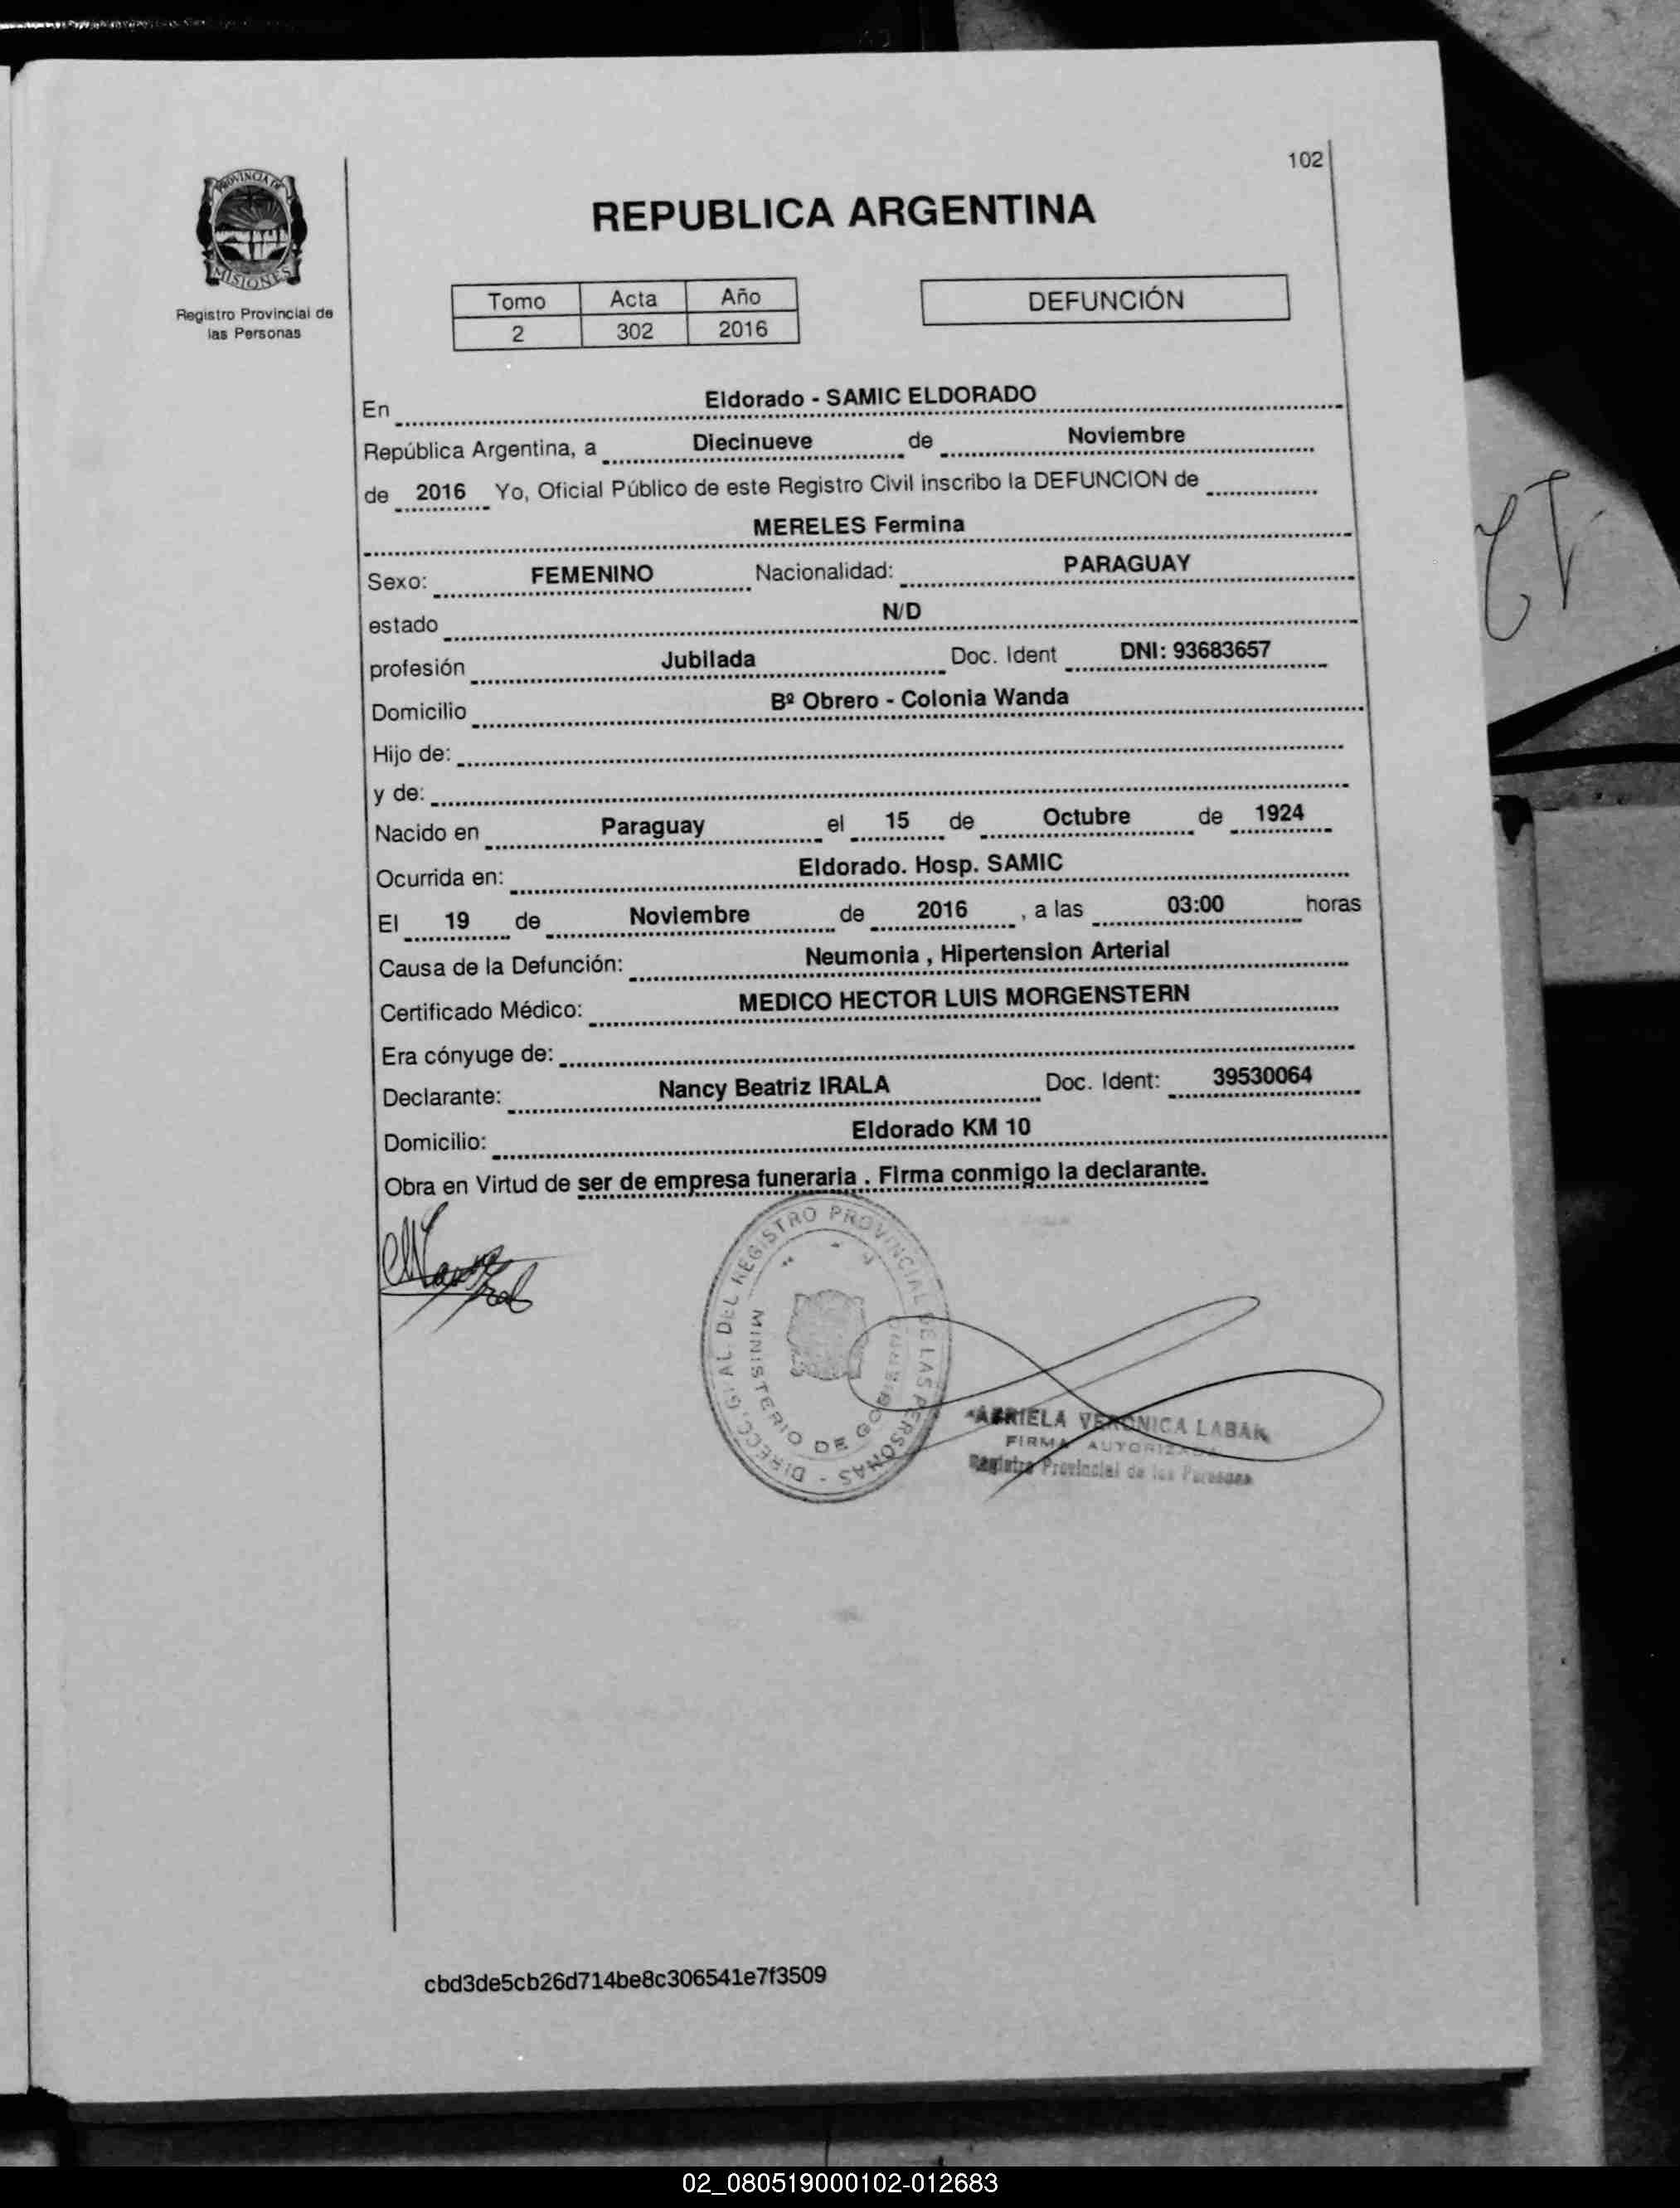 102
PROVINCIA DE
MISIONES
Registro Provincial de
las Personas
REPUBLICA ARGENTINA
Tomo Acta Año
2 302 2016
DEFUNCIÓN
En Eldorado - SAMIC ELDORADO
República Argentina, a Diecinueve de Noviembre
de 2016 Yo, Oficial Público de este Registro Civil inscribo la DEFUNCION de
MERELES Fermina
Sexo: FEMENINO Nacionalidad: PARAGUAY
estado N/D
profesión Jubilada Doc. Ident DNI: 93683657
Domicilio Bº Obrero - Colonia Wanda
Hijo de:
y de:
Nacido en Paraguay el 15 de Octubre de 1924
Ocurrida en: Eldorado. Hosp. SAMIC
El 19 de Noviembre de 2016 , a las 03:00 horas
Causa de la Defunción: Neumonia , Hipertension Arterial
Certificado Médico: MEDICO HECTOR LUIS MORGENSTERN
Era cónyuge de:
Declarante: Nancy Beatriz IRALA Doc. Ident: 39530064
Domicilio: Eldorado KM 10
Obra en Virtud de ser de empresa funeraria . Firma conmigo la declarante.
DIRECC. GRAL. DEL REGISTRO PROVINCIAL DE LAS PERSONAS -
MINISTERIO DE GOBIERNO
VERONICA
FIRMA AUTORIZADA
Registro Provincial de las Personas
cbd3de5cb26d714be8c306541e7f3509
02_080519000102-012683